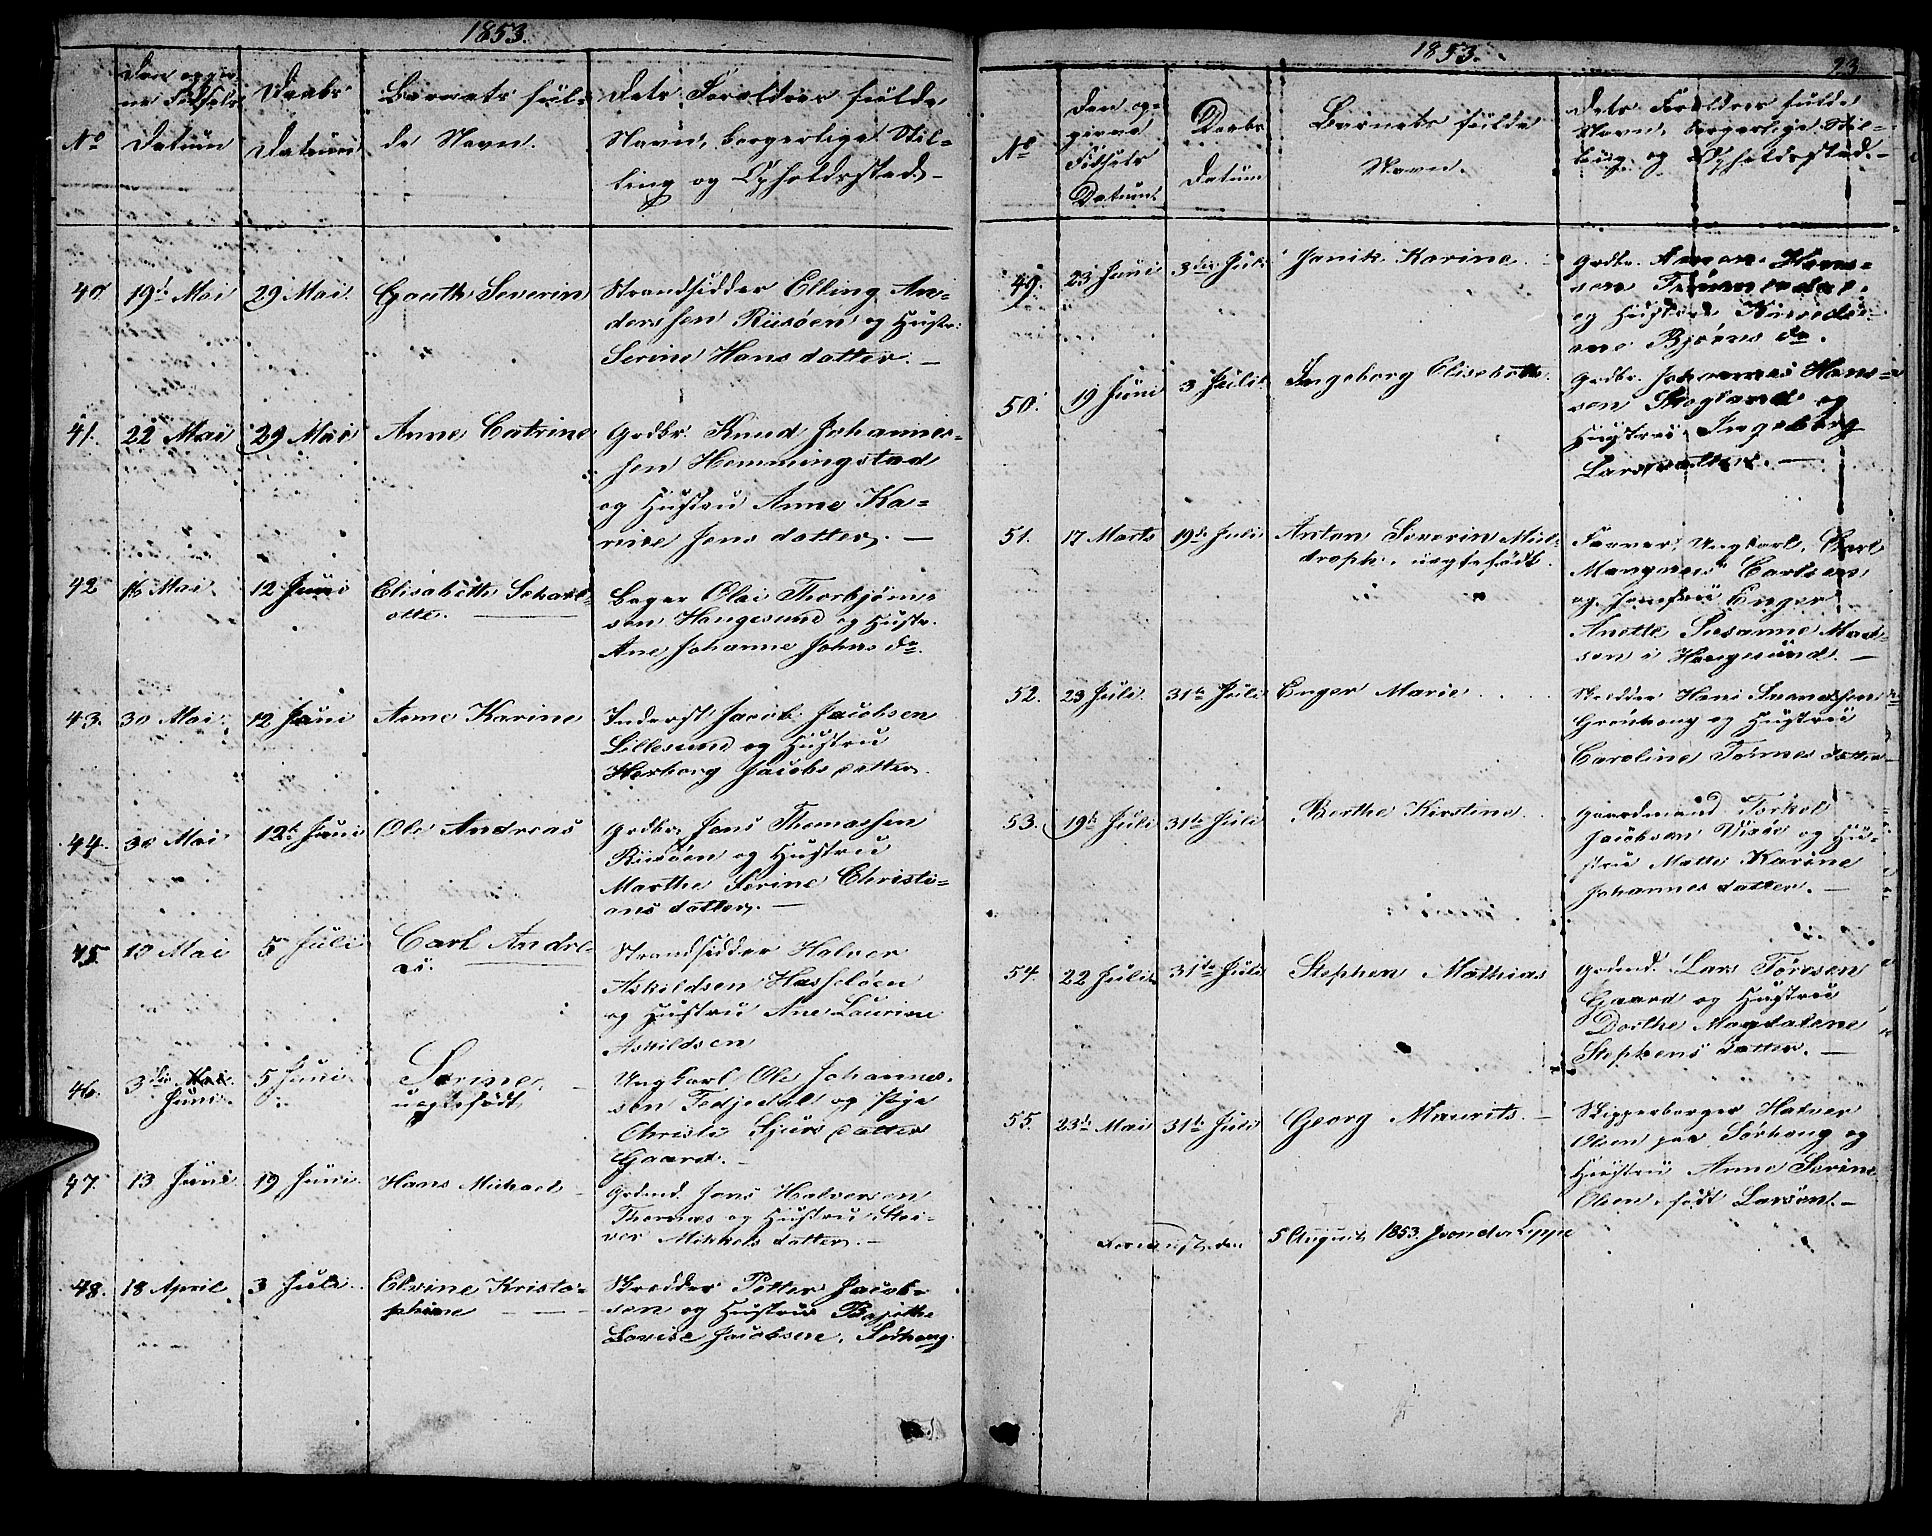 1853.
No
Den opgiv
ne Fødsels
Datum
Daabs
Datum
Barnets ful-
de Navn.
Dets Foreldres fulde
Navn, borgerlige Stil-
ling og Opholdssted-
40 19d Mai 29 Mai. Gouth Severin
Strandsidder Elling An-
derssen Risøen og Hustr:
Serine Hansdatter. –
41. 22 Mai 29 Mai Anne Catrine
Grdbr. Knud Johannes-
sen Hemmingstad
og Hustru Anne Ka-
rine Jens datter. –
42 16 Mai. 12 Juni Elisabeth Scharl-
otte.
Bager Olai Thorbjørn-
sen Haugesund og Hustr.
Ane Johanne Johns dr.
43. 30 Mai. 12 Juni Anne Karine
Inderst Jacob Jacobsen
Lillesund og Hustru
Herborg Jacobs datter.
44. 30 Mai 12t Juni Ole Andreas
Grdbr. Jens Thomassen
Risøen og Hustru
Marthe Serine Christi-
ans datter. –
45 13 Mai 5 Juli Carl Andre-
as.
Strandsidder Halver
Askildsen Hasseløen
og Hustru Ane Laurine
Askildsen
46. 3die Mai
Juni. 5 Juni. Serine,
uegtefødt
Ungkarl Ole Johannes-
sen Tedjedal og Pige
Christi Sjurs datter
Gaard. –
47. 13 Juni 19 Juni. Hans Michael –
Grdmd. Jens Halversen
Thornæs og Hustru
Mikkels datter. –
48. 18 April 3 Juli. Elsine Kristo-
phine
Skredder Petter Jacob-
sen og Hustrue
Lovise Jacobsen, Sørhaug.
1853.
23
No
Den op-
givne
Fødsels
Datum
Daabs
Datum
Barnets fulde
Navn.
Dets Foreldres fulde
Navn, borgerlige Stil-
ling og Opholdssted. –
49. 23 Juni 3die Juli Janik Karine
Grdbr. Aamon Han-
sen
og Hustrue
Bjørns dr.
50. 19 Juni 3 Juli. Ingeborg Elisebeth.
Grdbr. Johannes Han-
sen Skogland og
Hustrue Ingeborg
Larsdatter. –
51. 17 Marts 19de Juli Anton Severin Miel-
dreph. uegtefødt.
Farver, Ungkarl, Carl
Mangnus Carlsen
og Jomfru Enger
Anette Susanne Mad-
sen i Haugesund. –
52. 23 Juli. 31te Juli Enger Marie
Skredder Hans Svendsen
Grønhaug og Hustru
Caroline Tørres datter
53. 19d Juli 31te Juli Berthe Kirstine
Gaardmand Torkel
Jacobsen Vixie og Hu-
stru Mette Karine
Johannes datter. –
54. 22 Juli. 31te Juli Stephen Mathias
Grdmd. Lars Tøresen
Gaard og Hustru
Dorthe Magdalene
Stephens datter. –
55. 23d Mai 31te Juli Georg Maurits. –
Skipperborger Halver
Olsen paa Sørhaug og
Hustru Anne Serine
Olsen, født Larsen. –
5 August 1853.